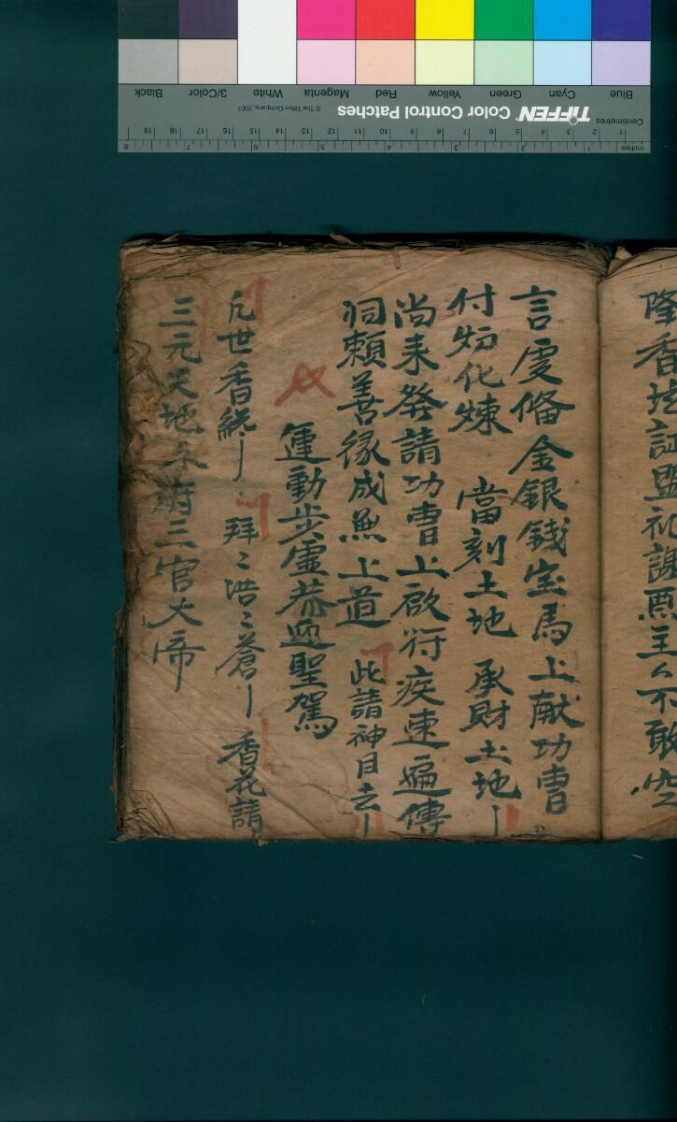 隆香坛証盟礼謝票主厶不敢空
言虔俻金銀錢宝馬上献功曹
付炉化煉 當刻土地 承財土地
尚来發請功曹上啟符疾速遍傳
洞賴善缘成無上道 此請神目去
運動步虛恭迎聖駕
凡世香統 拜〻浩〻蒼 香花請
三元天地水府三官大帝
Blue Cyan Green Yellow Red Magenta White 3/Color Black
Centimetres TIFFEN Color Control Patches © The Tiffen Company, 2007
1 2 3 4 5 6 7 8 9 10 11 12 13 14 15 16 17 18 19
Inches 1 2 3 4 5 6 7 8